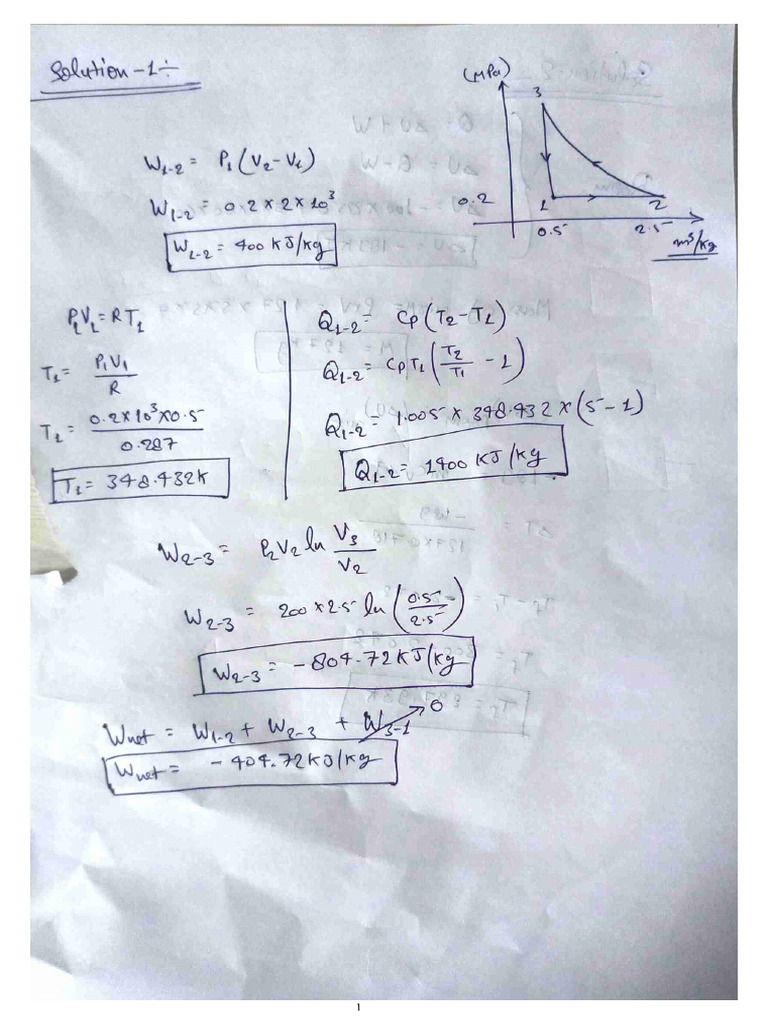 Solution-1÷
(MPa)
3
0.2
1
2
0.5
2.5
m³/kg
W1-2 = P1(V2-V1)
W1-2 = 0.2×2×10³
W1-2 = 400 KJ/kg
P1V1 = RT1
T1 = P1V1/R
T1 = 0.2×10³×0.5/0.287
T1 = 348.432K
Q1-2 = Cp(T2-T1)
Q1-2 = CpT1(T2/T1 - 1)
Q1-2 = 1.005 × 348.432 × (5-1)
Q1-2 = 1400 KJ/kg
W2-3 = P2V2 ln V3/V2
W2-3 = 200×2.5 ln(0.5/2.5)
W2-3 = -804.72KJ/kg
Wnet = W1-2 + W2-3 + W3-1 0
Wnet = -404.72KJ/kg
1